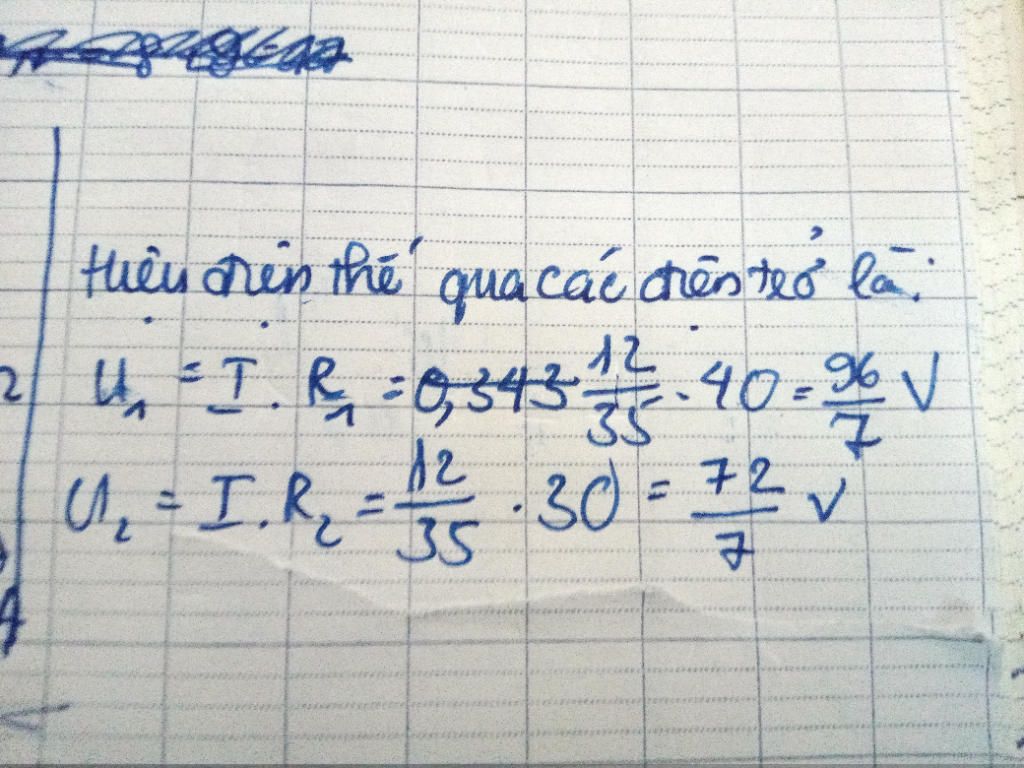 Hiệu điện thế qua các điện trở là:
U₁ = I . R₁ = 12/35 . 40 = 96/7 V
U₂ = I . R₂ = 12/35 . 30 = 72/7 V